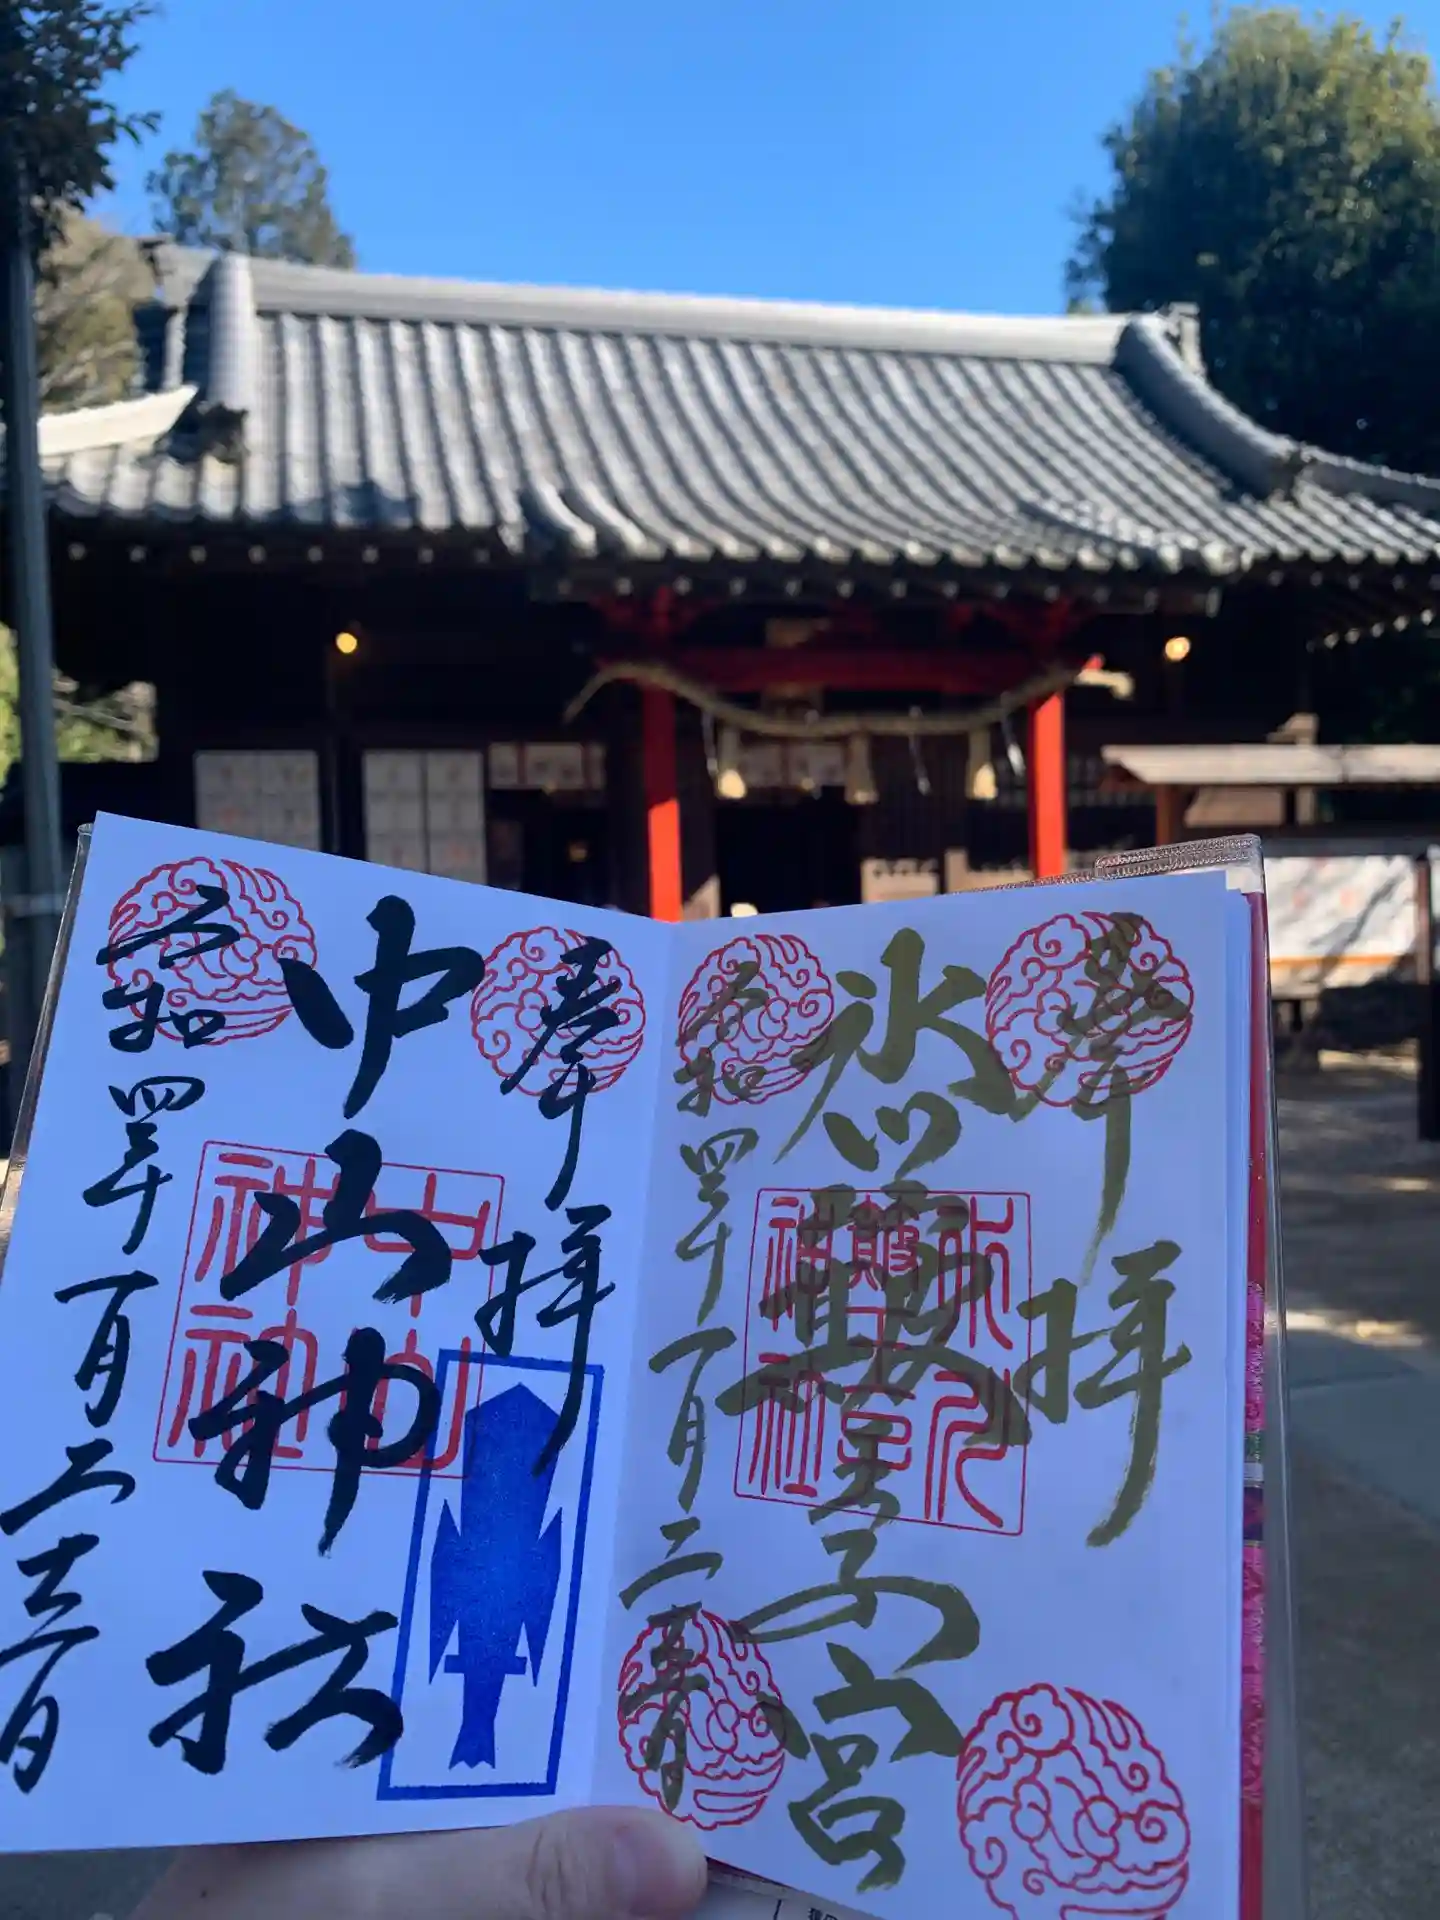 奉拝
氷川簸王子宮
令和四年一月二十三日
氷川
簸王子
神社
奉拝
中山神社
令和四年一月二十三日
中山
神社